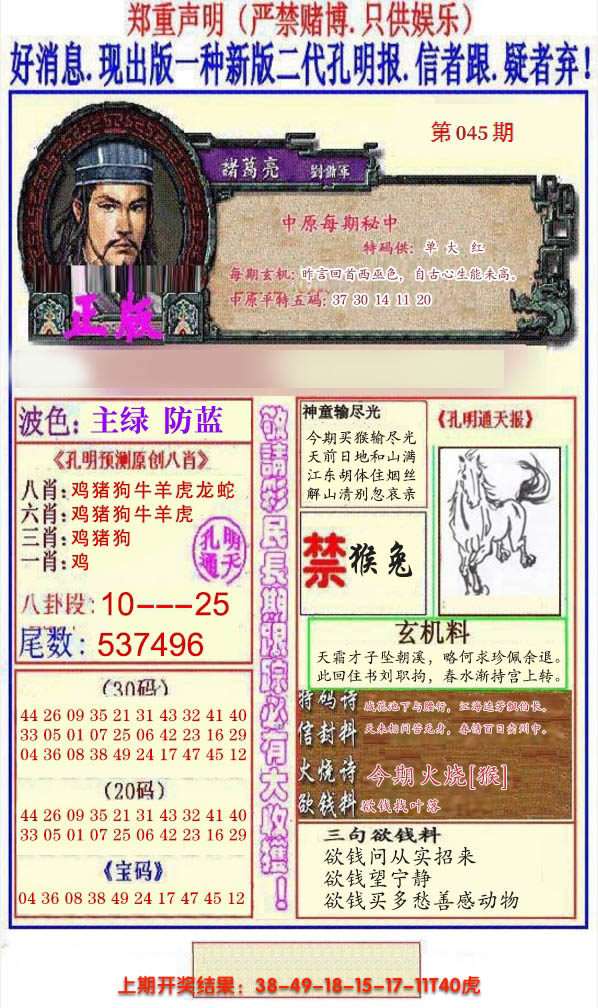 郑重声明（严禁赌博.只供娱乐）
好消息.现出版一种新版二代孔明报.信者跟.疑者弃！
第045期
諸葛亮 劉備軍
中原每期秘中
特码供：单 大 红
每期玄机：昨言回首西巫色，自古心生能未高。
中原平特五码：37 30 14 11 20
正版
波色：主绿 防蓝
《孔明预测原创八肖》
八肖：鸡猪狗牛羊虎龙蛇
六肖：鸡猪狗牛羊虎
三肖：鸡猪狗
一肖：鸡
孔明通天
八卦段：10---25
尾数：537496
（30码）
44 26 09 35 21 31 43 32 41 40
33 05 01 07 25 06 42 23 16 29
04 36 08 38 49 24 17 47 45 12
（20码）
44 26 09 35 21 31 43 32 41 40
33 05 01 07 25 06 42 23 16 29
《宝码》
04 36 08 38 49 24 17 47 45 12
敬請彩民長期跟踪必有大收獲！
神童输尽光
今期买猴输尽光
天前日地和山满
江东胡体住烟丝
解山清别忽哀亲
《孔明通天报》
禁 猴兔
玄机料
天霜才子坠朝溪，略何求珍佩余退。
此回住书刘职拘，春水渐持宫上转。
特码诗
信封料
火烧诗 今期火烧[猴]
欲钱料 欲钱找叶落
三句欲钱料
欲钱问从实招来
欲钱望宁静
欲钱买多愁善感动物
上期开奖结果：38-49-18-15-17-11T40虎